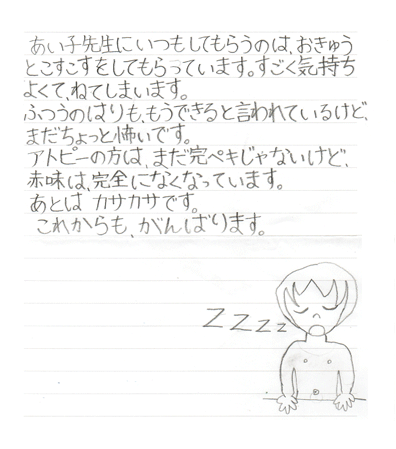 あい子先生にいつもしてもらうのは、おきゅう
とこすこすをしてもらっています。すごく気持ち
よくて、ねてしまいます。
ふつうのはりも、もうできると言われているけど、
まだちょっと怖いです。
アトピーの方は、まだ完ペキじゃないけど、
赤味は、完全になくなっています。
あとは カサカサです。
これからも、がんばります。
ZZZZ